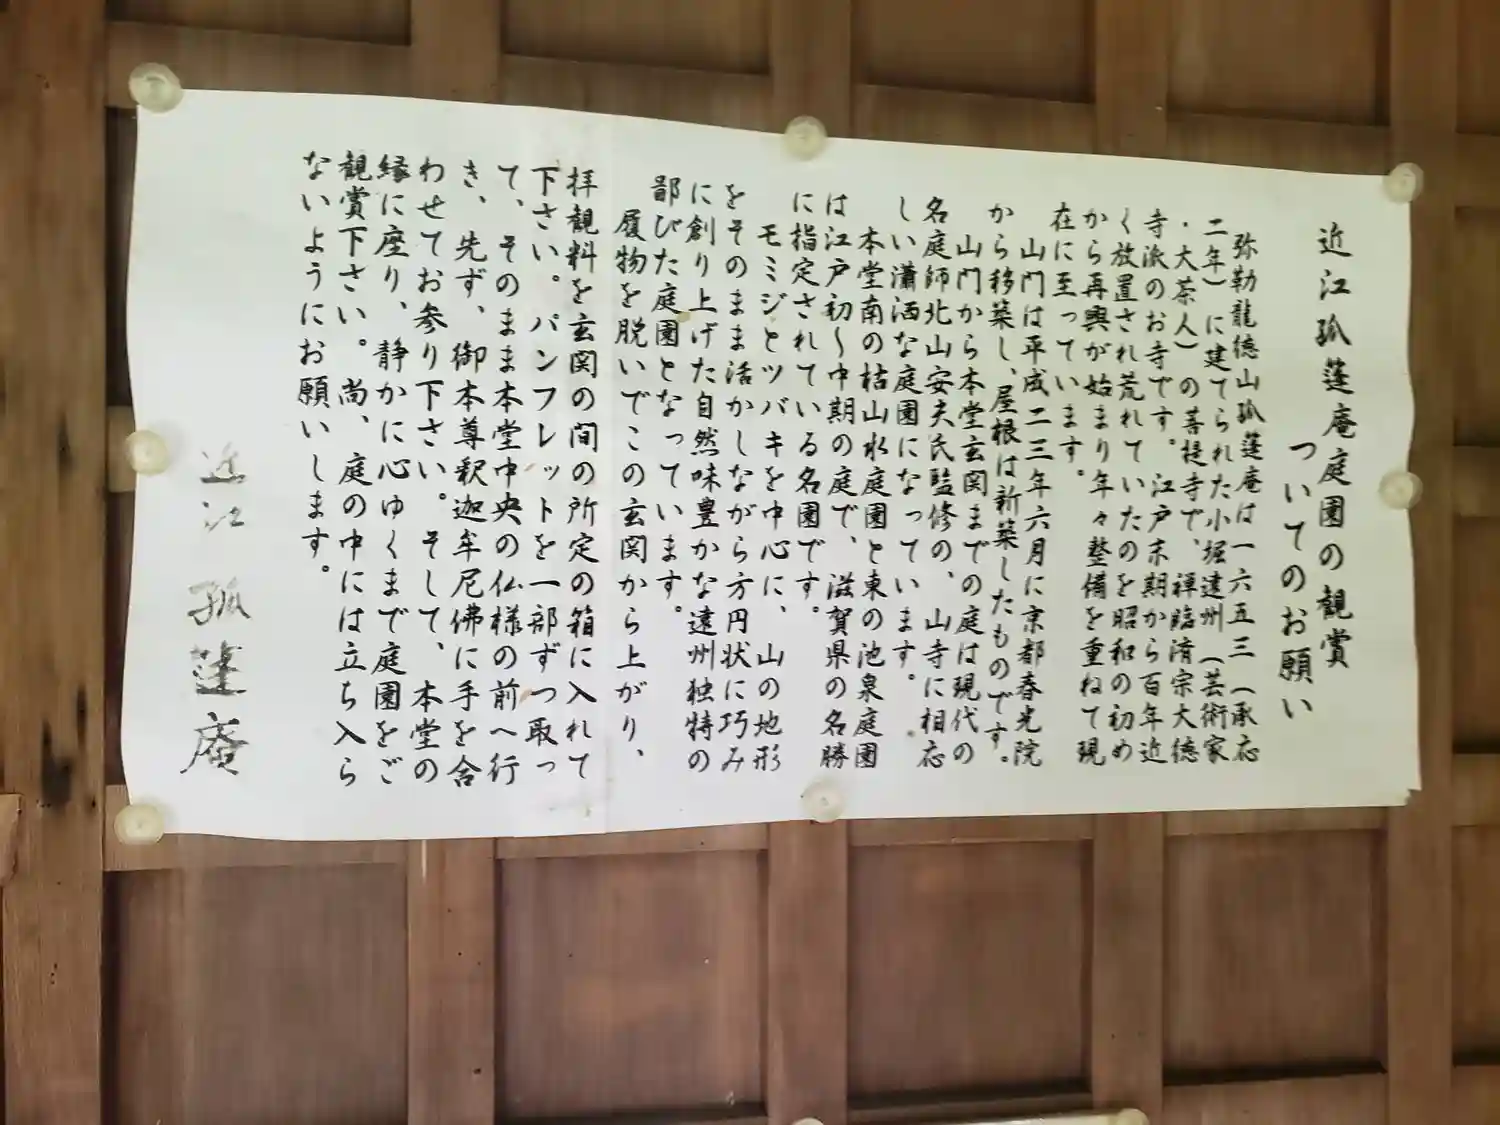 近江孤篷庵庭園の観賞
ついてのお願い
弥勒龍徳山孤篷庵は一六五三(承応
二年)に建てられた小堀遠州(芸術家
・大茶人)の菩提寺で、禅臨済宗大徳
寺派のお寺です。江戸末期から百年近
く放置され荒れていたのを昭和の初め
から再興が始まり年々整備を重ねて現
在に至っています。
山門は平成二三年六月に京都春光院
から移築し、屋根は新築したものです。
山門から本堂玄関までの庭は現代の
名庭師北山安夫氏監修の、山寺に相応
しい瀟洒な庭園になっています。
本堂南の枯山水庭園と東の池泉庭園
は江戸初〜中期の庭で、滋賀県の名勝
に指定されている名園です。
モミジとツバキを中心に、山の地形
をそのまま活かしながら方円状に巧み
に創り上げた自然味豊かな遠州独特の
鄙びた庭園となっています。
履物を脱いでこの玄関から上がり、
拝観料を玄関の間の所定の箱に入れて
下さい。パンフレットを一部ずつ取っ
て、そのまま本堂中央の仏様の前へ行
き、先ず、御本尊釈迦牟尼佛に手を合
わせてお参り下さい。そして、本堂の
縁に座り、静かに心ゆくまで庭園をご
観賞下さい。尚、庭の中には立ち入ら
ないようにお願いします。
近江孤篷庵